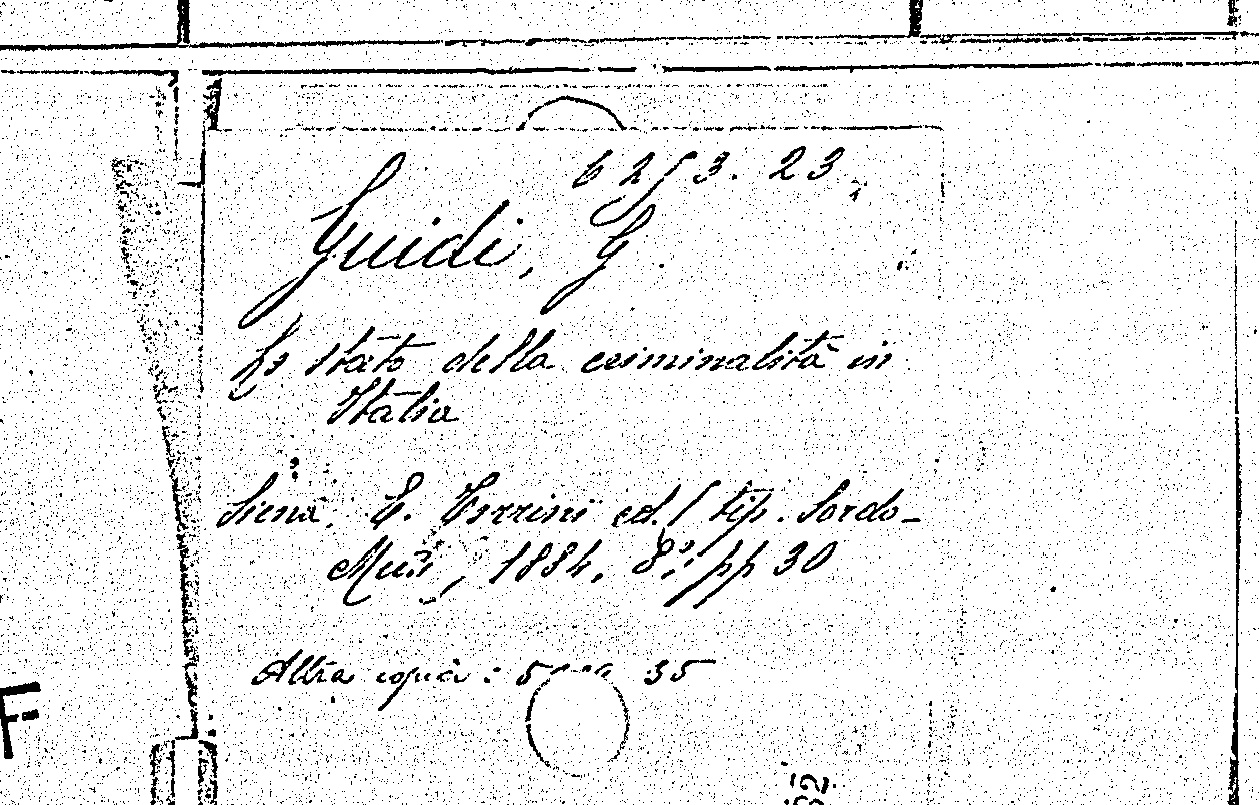 6253. 23
Guidi, G.
Lo stato della criminalità in
Italia
Siena, E. Torrini ed. (tip. Sordo-
Muti), 1884, 8.° pp 30
Altra copia: 35
F